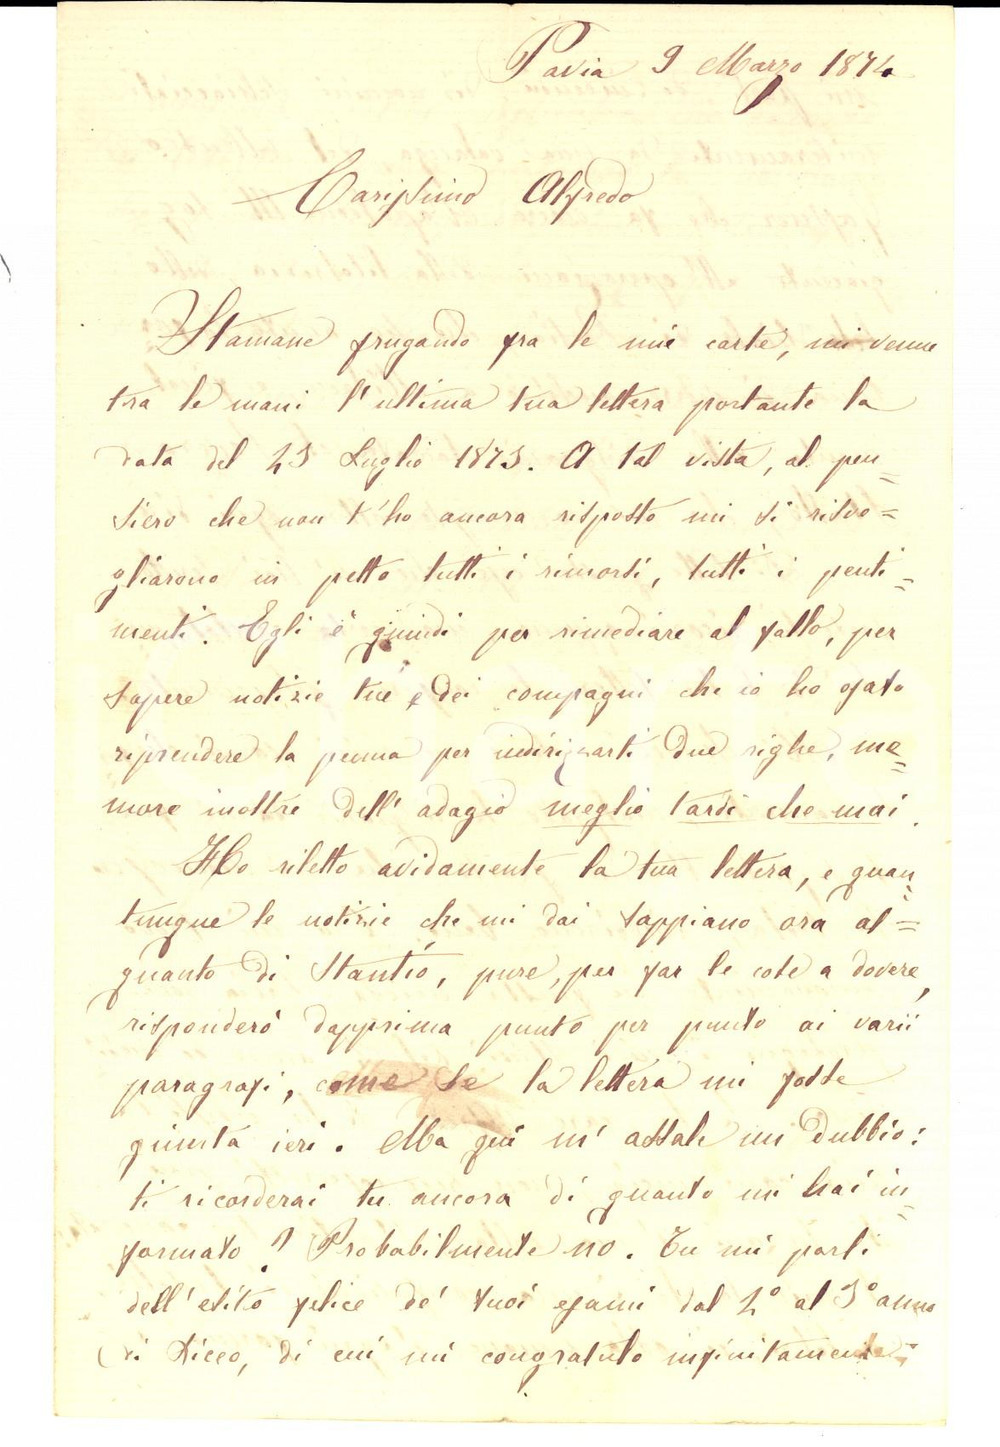 Pavia 9 Marzo 1874
Carissimo Alfredo
Stamane frugando fra le mie carte, mi venne
tra le mani l'ultima tua lettera portante la
data del 23 Luglio 1873. A tal vista, al pen=
siero che non t'ho ancora risposto mi si risve=
gliarono in petto tutti i rimorsi, tutti i penti=
menti. Egli è quindi per rimediare al fallo, per
sapere notizie tue e dei compagni che io ho osato
riprendere la penna per indirizzarti due righe, me=
more inoltre dell'adagio meglio tardi che mai.
Ho riletto avidamente la tua lettera, e quan=
tunque le notizie che mi dai sappiano ora al=
quanto di stantio, pure, per far le cose a dovere,
risponderò dapprima punto per punto ai varii
paragrafi, come se la lettera mi fosse
giunta ieri. Ma quì m'assale un dubbio:
ti ricorderai tu ancora di quanto mi hai in=
formato? Probabilmente no. Tu mi parli
dell'esito felice de' tuoi esami dal 2º al 3º anno
di Liceo, di cui mi congratulo infinitamente;